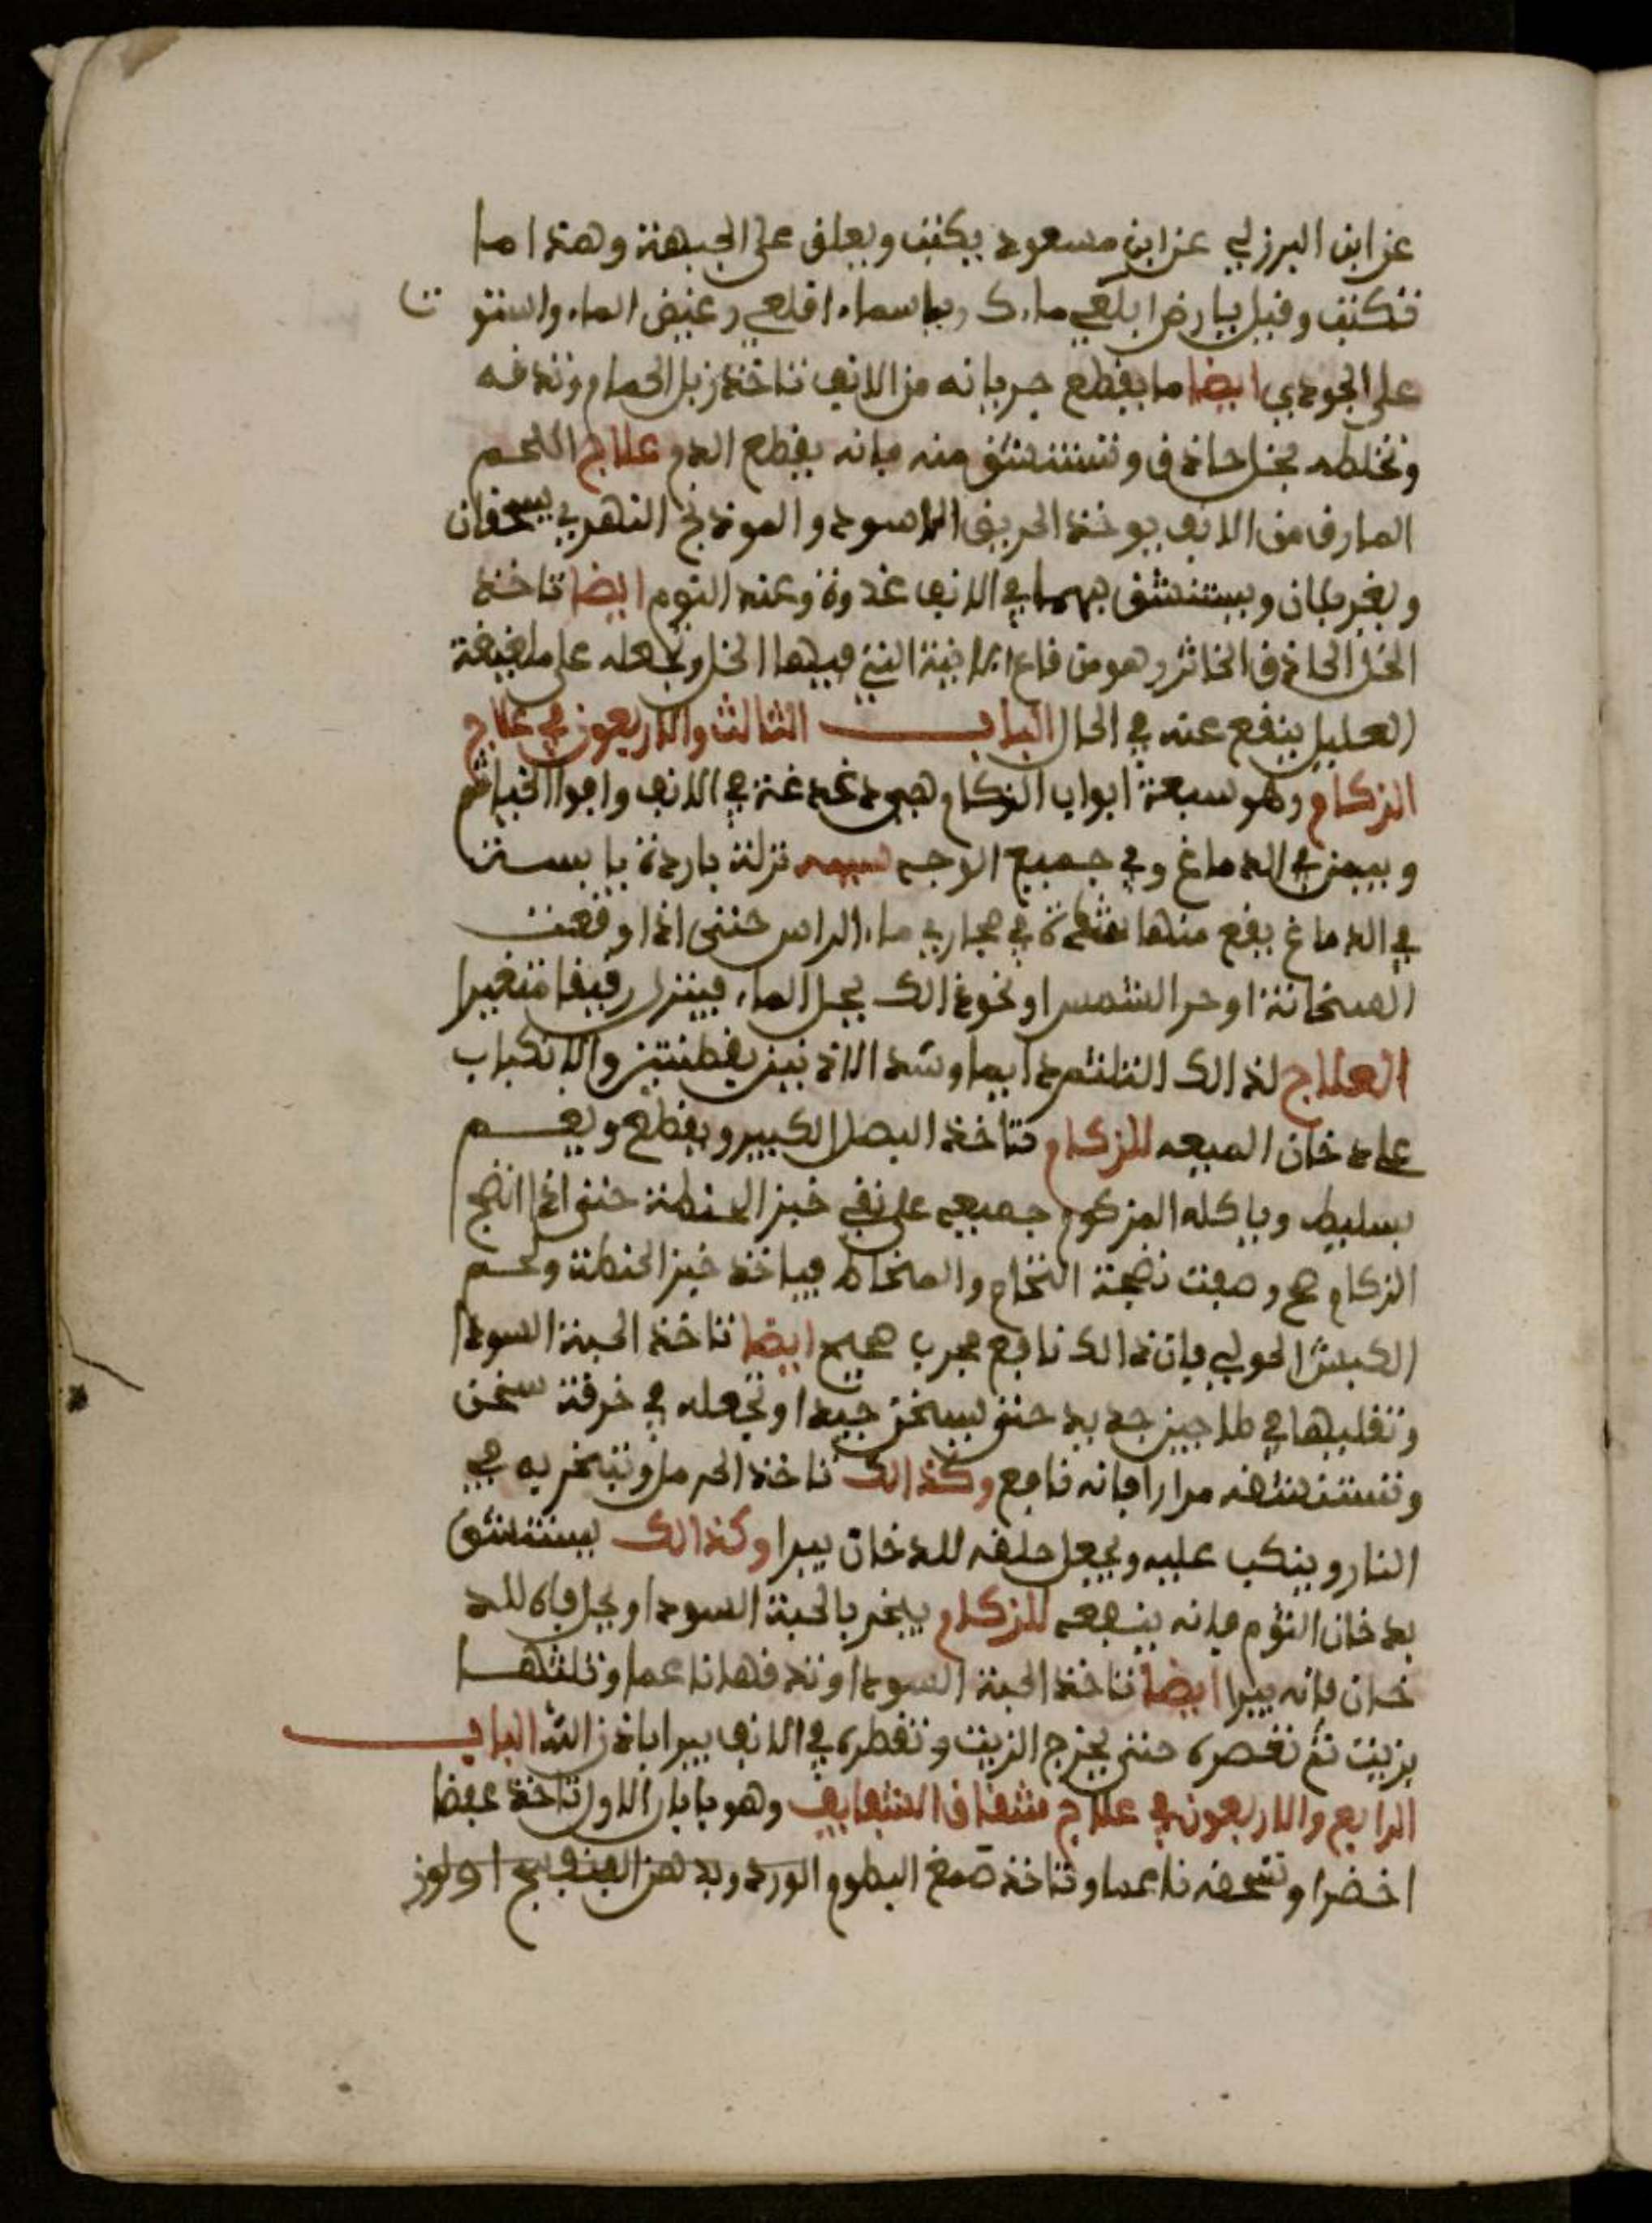 عن ابن البرزلي عن ابن مسعود يكتب ويعلق على الجبهة وهذا ما
تكتب وقيل يا رض ابلعي ماءك ويا سماء اقلعي وغيض الماء واستوت
على الجودي ايضا ما يقطع جريانه من الانف تاخذ زبل الحمام وتدقه
وتخلطه بخل حاذق وتستنشق منه فانه يقطع الدم علاج اللحم
المارق من الانف يوخذ الخربق الاسود والفوذنج النهري يسحقان
ويغربلان ويستنشق بهما في الانف غدوة وعند النوم ايضا تاخذ
الخل الحاذق الخاثر وهو من قاع الانية التي فيها الخل وتجعله على
العليل ينفع عنه في الحال الباب الثالث والاربعون في علاج
الزكام وهو سبعة ابواب الزكام هيجود غدغة في الانف وافوا الخياشم
في الدماغ وفي جميع الوجه سببه نزلة باردة يابسة
في الدماغ يقع منها في مجاري ماء الراس حتى اذا وقعت
السخانة او حر الشمس او نحو ذالك يحل الماء فينزل رقيقا متغيرا
العلاج لذالك التلثم دايما وشد الاذنين بقطنتين والانكباب
على دخان الميعه للزكام تاخذ البصل الكبير ويقطع ويعم
بسليط وياكله المزكوم جميعه على نقي خبز الحنطة حتى اذا انضج
الزكام صح وصفت نضجة النخام والمخاط فياخذ خبز الحنطة ولحم
الكبش الحولي فان ذالك نافع مجرب صحيح ايضا تاخذ الحبة السودا
وتقليها في طاجين جديد حتى يسخن جيدا وتجعله في خرقة سخن
وتستنشقه مرارا فانه نافع وكذالك تاخذ الحرمل وتبخر به في
النار وينكب عليه ويجعل حلقه للدخان يبرا وكذالك يستنشق
بدخان الثوم فانه ينفعه للزكام يبخر بالحبة السودا ويحل فاه للد
خان فانه يبرا ايضا تاخذ الحبة السودا وتدقها ناعما وتلتها
بزيت ثم تعصره حتى يخرج الزيت وتقطره في الانف يبرا باذن الله الباب
الرابع والاربعون في علاج شقاق الشفايف وهو بابان الاول تاخذ عفصا
اخضرا وتسحقه ناعما وتاخذ صمغ البطوم والورد وبدهن البنفسج او لوز